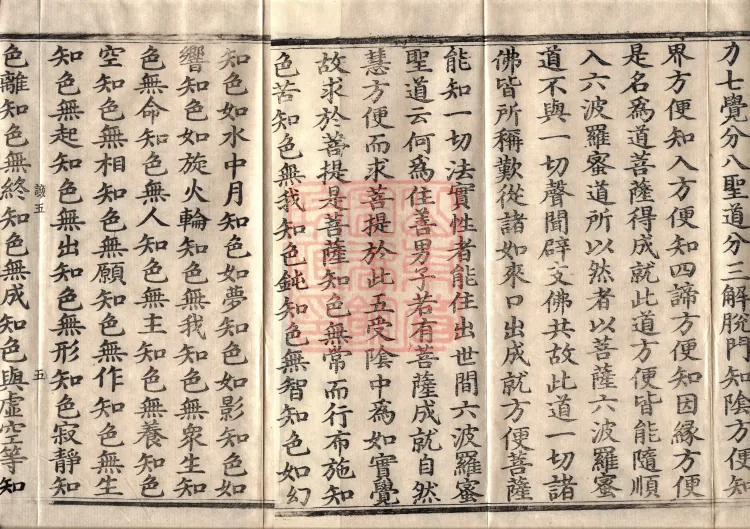 力七覺分八聖道分三解脫門知陰方便知
界方便知入方便知四諦方便知因緣方便
是名為道菩薩得成就此道方便皆能隨順
入六波羅蜜道所以然者以菩薩六波羅蜜
道不與一切聲聞辟支佛共故此道一切諸
佛皆所稱歎從諸如來口出成就方便菩薩
能知一切法實性者能住出世間六波羅蜜
聖道云何為住善男子若有菩薩成就自然
慧方便而求菩提於此五受陰中為如實覺
故求於菩提是菩薩知色無常而行布施知
色苦知色無我知色鈍知色無智知色如幻
知色如水中月知色如夢知色如影知色如
響知色如旋火輪知色無我知色無衆生知
色無命知色無人知色無主知色無養知色
空知色無相知色無願知色無作知色無生
知色無起知色無出知色無形知色寂靜知
五
色離知色無終知色無成知色與虛空等知